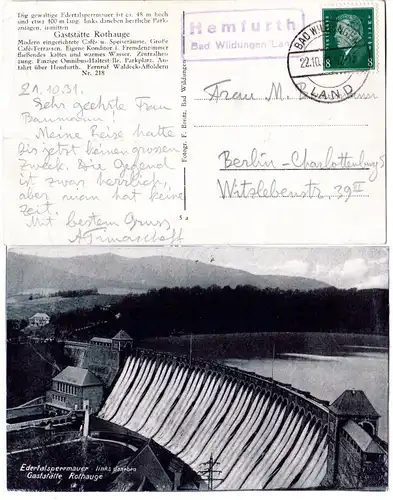 Die gewaltige Edertalsperrmauer ist ca. 48 m hoch
und etwa 400 m lang. links daneben herrliche Park-
anlagen, inmitten
Gaststätte Rothauge
Modern eingerichtete Café- u. Speiseräume. Große
Café-Terrassen. Eigene Konditor i. Fremdenzimmer
fließendes kaltes und warmes Wasser. Zentralhei-
zung. Einzige Omnibus-Haltest lle. Parkplatz. An-
fahrt über Hemfurth. Fernruf Waldeck-Affoldern
Nr. 218
Hemfurth
Bad Wildungen Land
BAD WILDUNGEN
22.10.
LAND
8 8
21.10.31.
Sehr geehrte Frau
Baumann!
Meine Reise hatte
bis jetzt keinen grossen
Zweck. Die Gegend
ist zwar herrlich,
aber man hat keine
Zeit.
Mit bestem Gruss
Frau M.
Berlin-Charlottenburg 5
Witzlebenstr. 39 III
Fotogr. F. Bremt, Bad Wildungen
5 a
Edertalsperrmauer links daneben
Gaststätte Rothauge